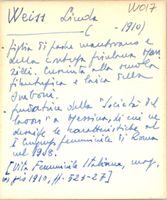 Weiss Linda W017
( -1910)
- figlia di padre mantovano e
della contessa friulana
zilli. Cresciuta alla scuola
filantropica e laica della
- fondatrice della "Società del
lavoro" a Messina, di cui ne
descrisse le caratteristiche al
I Congresso femminile di Roma
nel 1908.
[Vita Femminile Italiana, mag.
giu 1910, pp. 525-27]